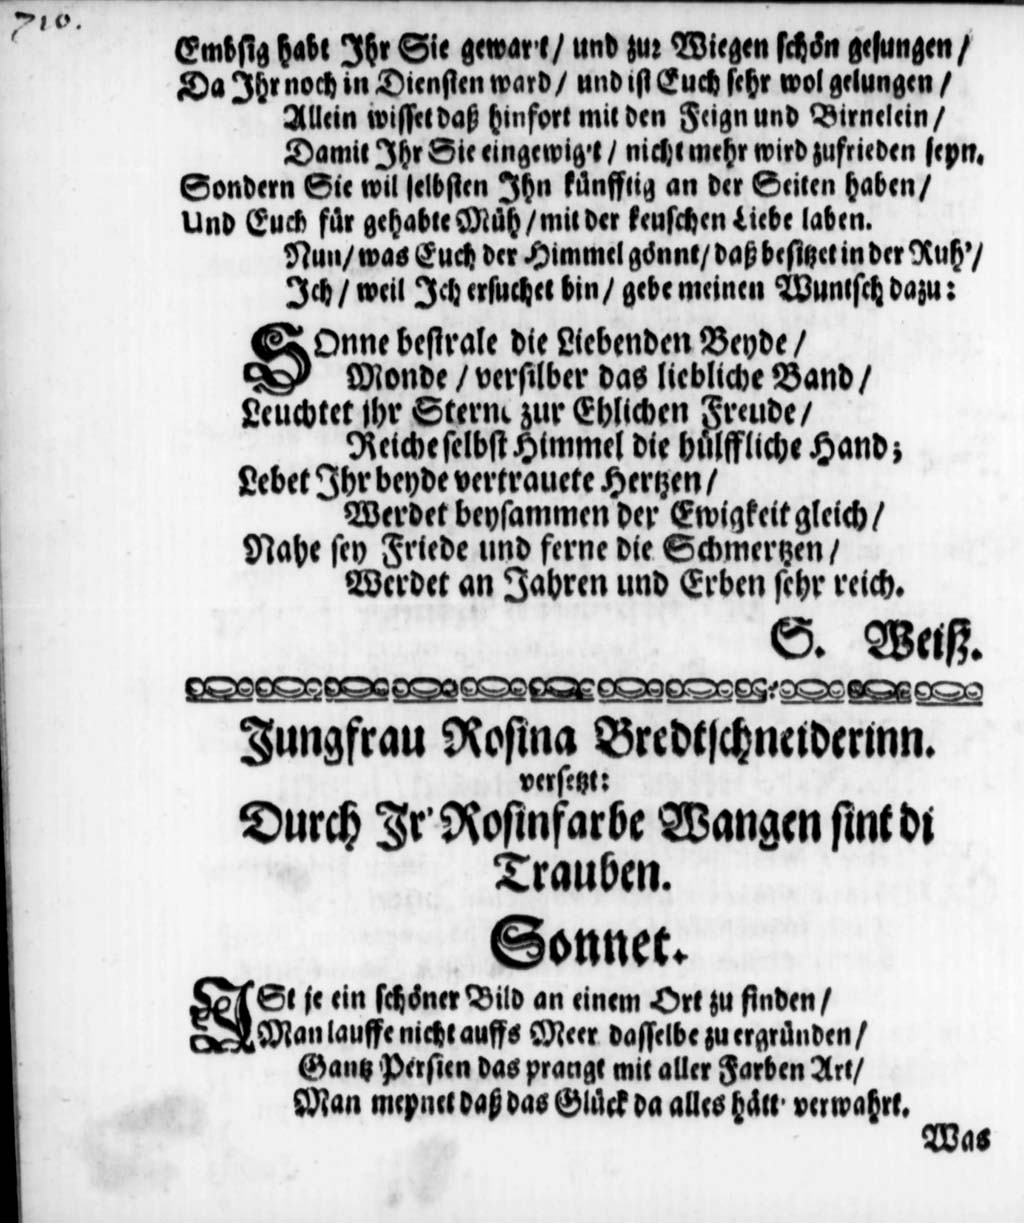 710.
Embsig habt Ihr Sie gewar't / und zur Wiegen schön gesungen /
Da Ihr noch in Diensten ward / und ist Euch sehr wol gelungen /
Allein wisset daß hinfort mit den Feign und Birnelein /
Damit Ihr Sie eingewig't / nicht mehr wird zufrieden seyn.
Sondern Sie wil selbsten Ihn künfftig an der Seiten haben /
Und Euch für gehabte Müh / mit der keuschen Liebe laben.
Nun / was Euch der Himmel gönnt / daß besitzet in der Ruh' /
Ich / weil Ich ersuchet bin / gebe meinen Wuntsch dazu:
SOnne bestrale die Liebenden Beyde /
Monde / versilber das liebliche Band /
Leuchtet ihr Stern zur Ehlichen Freude /
Reiche selbst Himmel die hülffliche Hand;
Lebet Ihr beyde vertrauete Hertzen /
Werdet beysammen der Ewigkeit gleich /
Nahe sey Friede und ferne die Schmertzen /
Werdet an Jahren und Erben sehr reich.
S. Weiß.
Jungfrau Rosina Bredtschneiderinn.
versetzt:
Durch Ir' Rosinfarbe Wangen sint di
Trauben.
Sonnet.
ISt je ein schöner Bild an einem Ort zu finden /
Man lauffe nicht auffs Meer dasselbe zu ergründen /
Gantz Persien das prangt mit aller Farben Art /
Man meynet daß das Glück da alles hätt' verwahrt.
Was